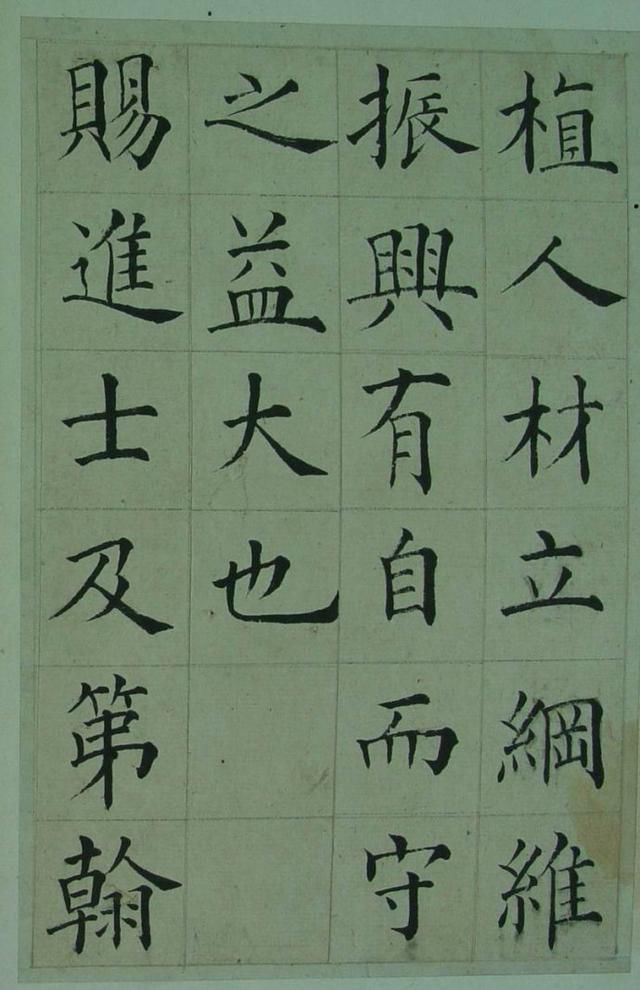 植人材立綱維
振興有自而守
之益大也
賜進士及第翰